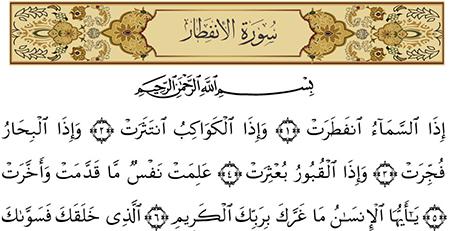 سورة الانفطار
بِسْمِ ٱللَّهِ ٱلرَّحْمَٰنِ ٱلرَّحِيمِ
إِذَا ٱلسَّمَآءُ ٱنفَطَرَتْ ﴿١﴾ وَإِذَا ٱلْكَوَاكِبُ ٱنتَثَرَتْ ﴿٢﴾ وَإِذَا ٱلْبِحَارُ
فُجِّرَتْ ﴿٣﴾ وَإِذَا ٱلْقُبُورُ بُعْثِرَتْ ﴿٤﴾ عَلِمَتْ نَفْسٌ مَّا قَدَّمَتْ وَأَخَّرَتْ
﴿٥﴾ يَٰٓأَيُّهَا ٱلْإِنسَٰنُ مَا غَرَّكَ بِرَبِّكَ ٱلْكَرِيمِ ﴿٦﴾ ٱلَّذِى خَلَقَكَ فَسَوَّىٰكَ